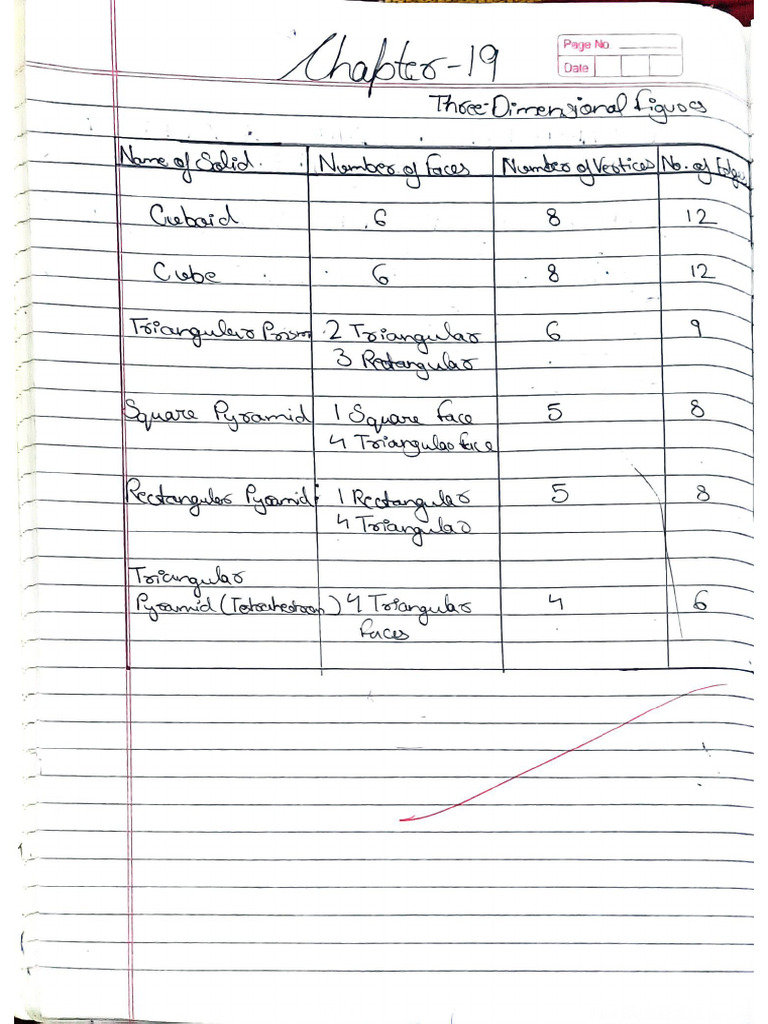 Page No.
Date
Chapter-19
Three-Dimensional Figures
Name of Solid Number of Faces Number of Vertices No. of Edges
Cuboid 6 8 12
Cube 6 8 12
Triangular Prism 2 Triangular 6 9
3 Rectangular
Square Pyramid 1 Square face 5 8
4 Triangular face
Rectangular Pyramid 1 Rectangular 5 8
4 Triangular
Triangular
Pyramid (Tetrahedron) 4 Triangular 4 6
faces